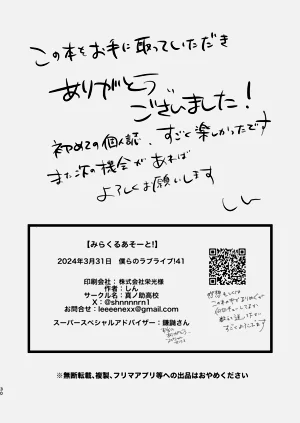 この本をお手に取っていただき
ありがとう
ございました!
初めての個人誌、すごく楽しかったです
また次の機会があれば
よろしくお願いします
しん
【みらくるあそーと!】
2024年3月31日 僕らのラブライブ!41
印刷会社:株式会社栄光様
作者:しん
サークル名:真ノ助高校
X:@shnnnnrn1
お問合せ:leeeenexx@gmail.com
スーパースペシャルアドバイザー:鎌鼬さん
※無断転載、複製、フリマアプリ等への出品はおやめください
30